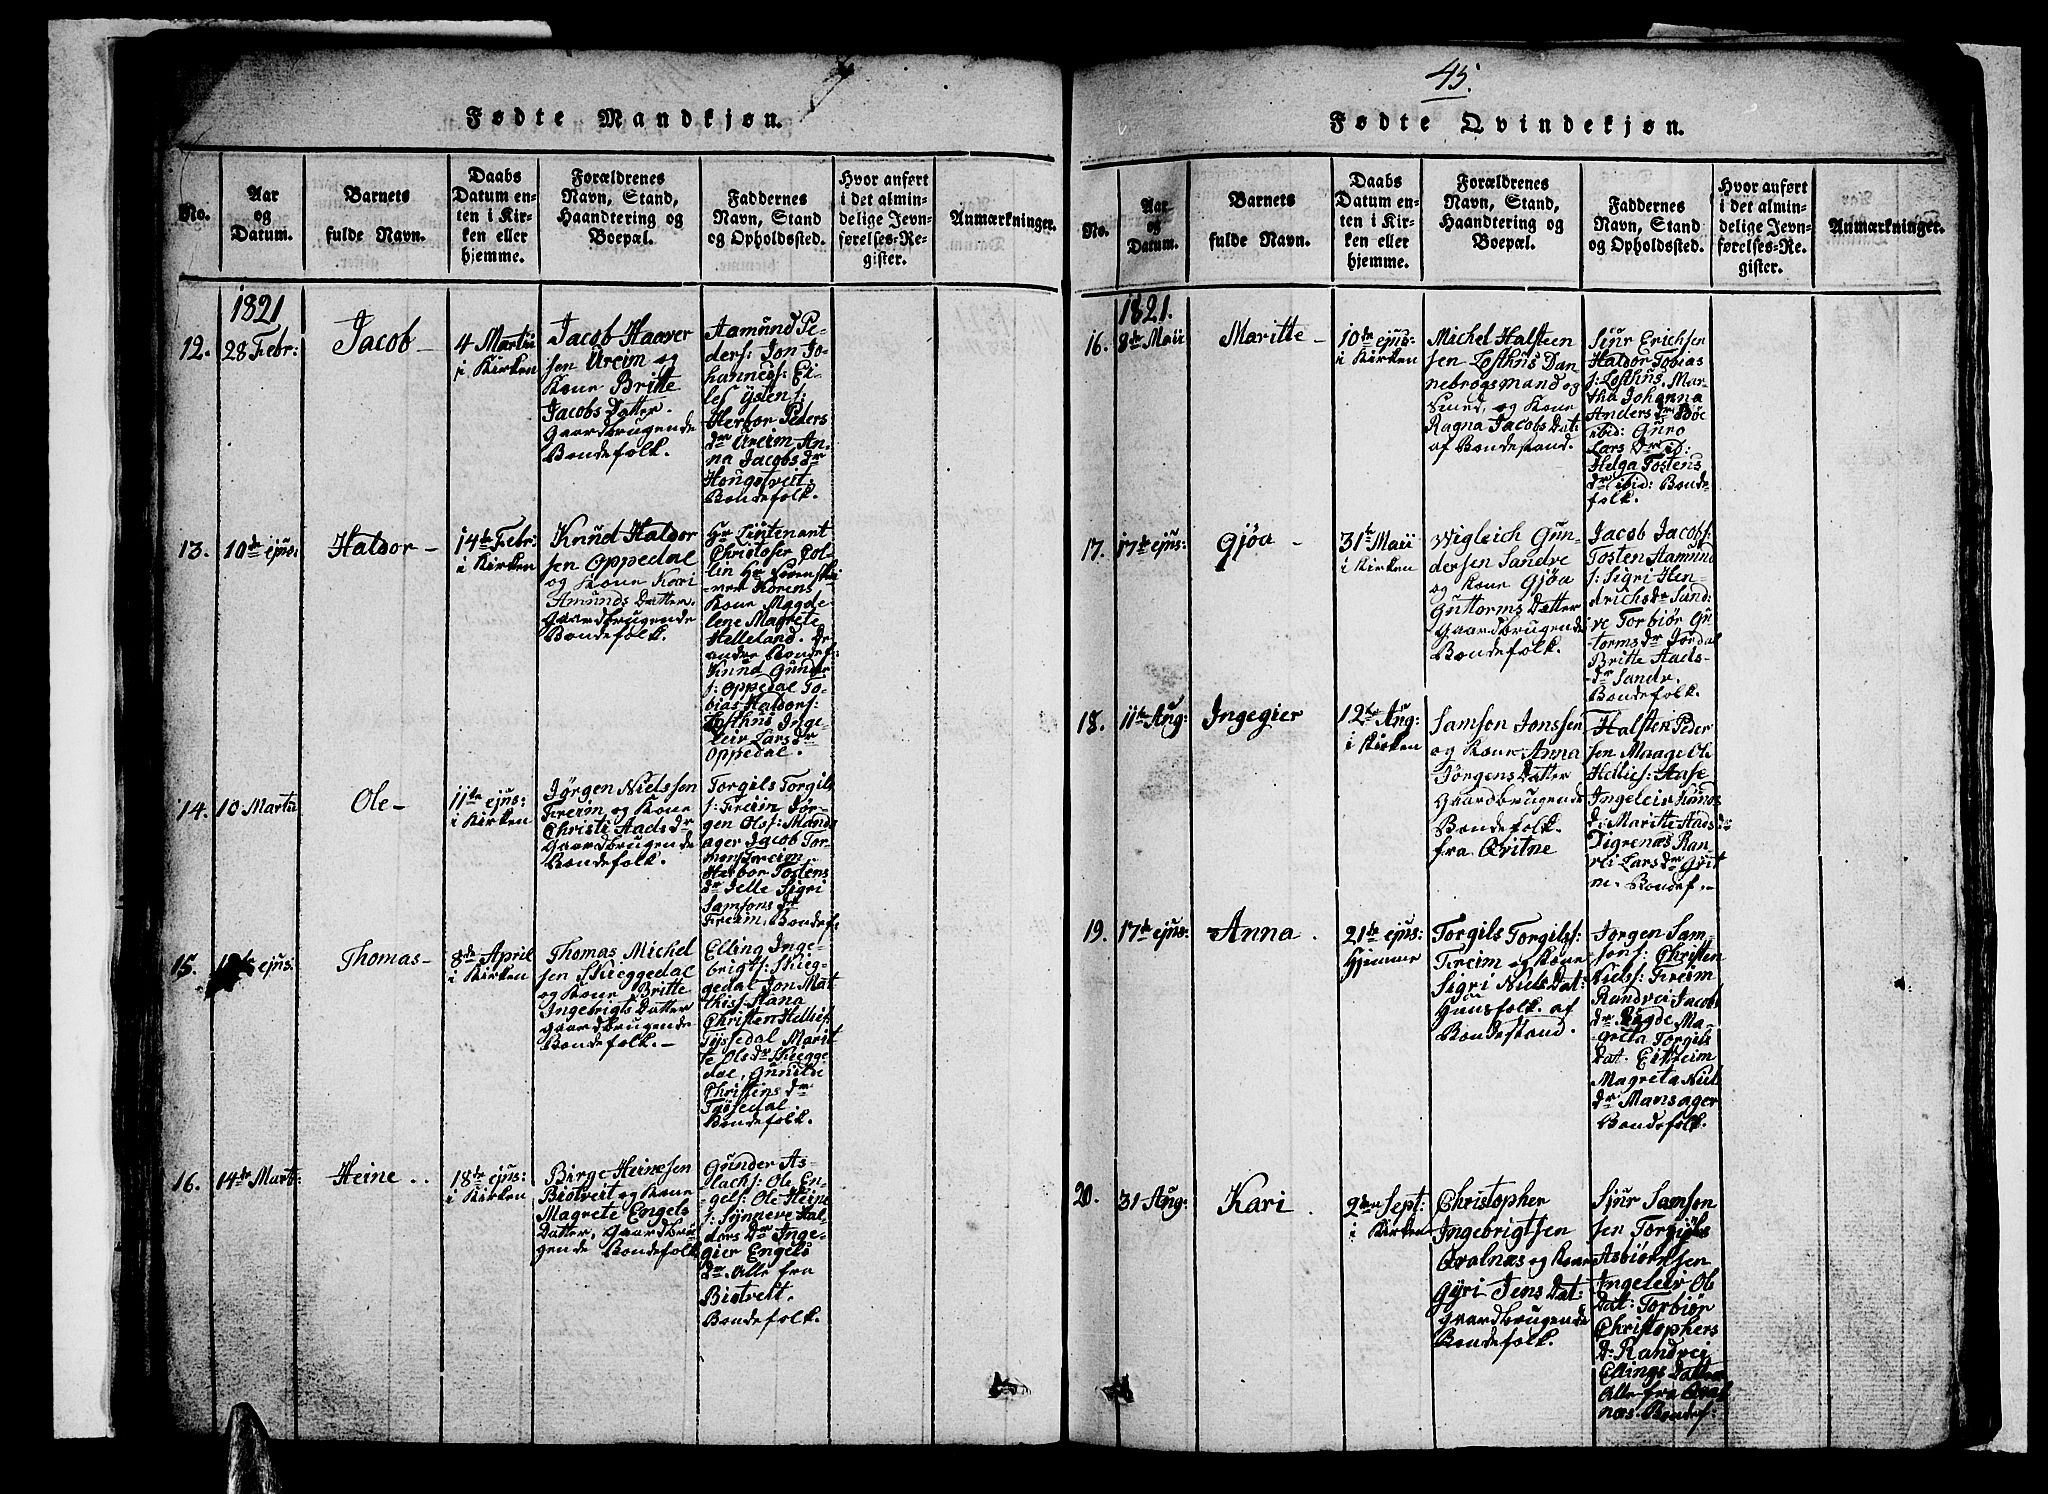 45.
Fødte Mandkjøn.
No.
Aar
og
Datum.
Barnets
fulde Navn.
Daabs
Datum en-
ten i Kir-
ken eller
hjemme.
Forældrenes
Navn, Stand,
Haandtering og
Boepæl.
Faddernes
Navn, Stand
og Opholdssted.
Hvor anført
i det almin-
delige Jevn-
førelses-Re-
gister.
Anmærkninger.
1821
12.
28 Febr:
Jacob
4 Martii
i Kirken
Jacob Haaver
sen Ureim og
Kone Britte
Jacobs Datter.
Gaardbrugende
Bondefolk.
Aamund Pe-
ders: Jon Jo-
hanness: Ei-
lef Østens:
Herbor Peders
dr Ureim An-
na Jacobs dr
Hougstveit.
Bondefolk.
13.
10de ejus:
Haldor
14de Febr:
i Kirken
Knud Haldor
sen Oppedal
og Kone Kari
Amunds Datter.
Gaardbrugende
Bondefolk.
Hr Liutenant
Christofer Col-
lin Hr Sorenskri
ver Korens
Kone Magde
lene Magrete
Helleland. De
andre Bondef:
Knud Gunder
s: Oppedal To-
bias Haldors:
Lofthus Inge-
leir Lars dr
Oppedal.
14.
10 Martii
Ole
11te ejus:
i Kirken
Jørgen Nielssen
Freim og Kone
Christi Aads dr
Gaardbrugende
Bondefolk.
Torgils Torgils
s: Freim Jør-
gen Ols: Mands
ager Jacob Tor-
mons: Freim
Harbor Tostens
dr Jelle Sigri
Samsons dr
Freim. Bondef.
15.
ejus:
Thomas
8de April
i Kirken
Thomas Michel
sen Skieggedal
og Kone Britte
Ingebrigts Datter
Gaardbrugende
Bondefolk.
Elling Inge-
brigts: Skieg-
gedal Jon Mat
thiss: Aana
Christen Hellies
Tyssedal Marit
te Ols dr Skiegge
dal, Gunilde
Christens dr
Tyssedal.
Bondefolk.
16.
14de Mart:
Heine
18de ejus:
i Kirken
Birge Heinesen
Bistveit og Kone
Magrete Engels
Datter, Gaardbru-
gende Bondefolk
Gunder As-
lachs: Ole En-
gels: Ole Heine
s: Synneve Hal
dors Dr Inge-
gier Engels
Dr. Alle fra
Bistveit.
Bondefolk.
Fødte Qvindekjøn.
No.
Aar
og
Datum.
Barnets
fulde Navn.
Daabs
Datum en-
ten i Kir-
ken eller
hjemme.
Forældrenes
Navn, Stand,
Haandtering og
Boepæl.
Faddernes
Navn, Stand
og Opholdssted.
Hvor anført
i det almin-
delige Jevn-
førelses-Re-
gister.
Anmærkninger.
1821.
16.
8de Maii
Maritte
10de ejus:
i Kirken
Michel Halsteen
sen Lofthus Dan
nebrogsmand og
Smed, og Kone
Ragna Jacobs Dat:
af Bondestand.
Siur Erichsen
Haldor Tobias
s: Lofthus, Mar-
tha Johanna
Anders dr Bøe
ibid: Guro
Lars Dr id:
Helga Tostens
dr ibid: Bonde
folk.
17.
17de ejus:
Gjøa
31te Maii
i Kirken
Wigleich Gun-
dersen Sandve
og Kone Gjøa
Guttorms Datter
Gaardbrugende
Bondefolk.
Jacob Jacobs:
Tosten Aamund
s: Sigri Hen-
drichs dr Sand:
ve Torbiør Gu
torms dr Jordal
Britte Aads-
dr Sandv.
Bondefolk.
18.
11te Aug:
Ingegier
12te Aug:
i Kirken
Samson Jonssen
og Kone Anna
Jørgens Datter
Gaardbrugende
Bondefolk.
fra Qvitne
Halsten Peder
sen Maage Ole
Hellies: Aase
Ingeleir Knuds
d: Maritte Aads dr
Digrenæs Ran-
vei Lars dr
Bondef.
19.
17de ejus:
Anna
21de ejus:
Hjemme
Torgils Torgilss:
Freim og Kone
Sigri Niels Dat:
Huusfolk af
Bondestand.
Jorgen Sam-
sons: Christen
Niels: Freim
Randvei Jacobs
dr Bugde Ma-
greta Torgils
Dat. Eitreim
Magreta Niels
dr Mansager
Bondefolk.
20.
31 Aug:
Kari
2den Sept:
i Kirken
Christopher
Ingebrigtsen
Qvalnæs og Kone
Gyri Jens Dat:
Gaardbrugende
Bondefolk.
Sjur Samson
sen Torgils
Asbiørnsen
Ingeleir Ols
Dat: Torbiør
Christophers
D: Randvei
Ellings Datter
Alle fra Qval
næs. Bondef: